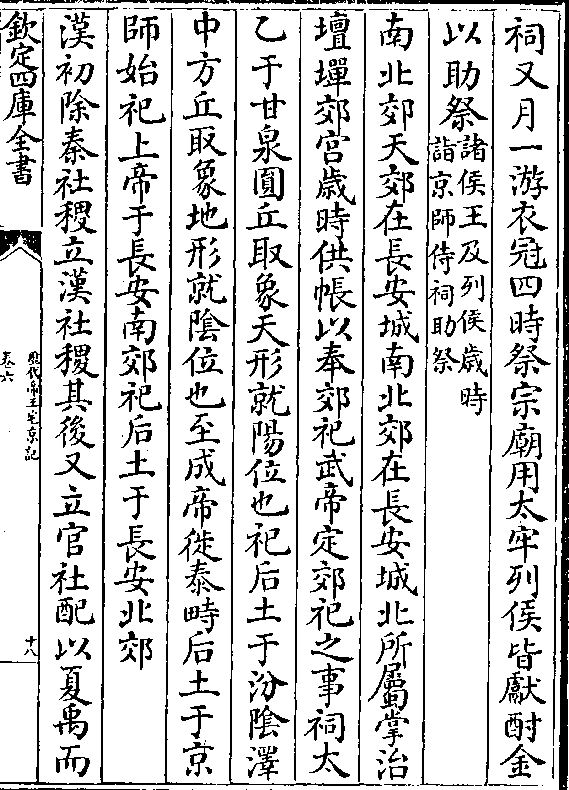 祠又月一游衣冠四時祭宗廟用太牢列侯皆獻酎金
以助祭諸侯王及列侯歲時
詣京師侍祠助祭
南北郊天郊在長安城南北郊在長安城北所屬掌治
壇墠郊宫歲時供帳以奉郊祀武帝定郊祀之事祠太
乙于甘泉圓丘取象天形就陽位也祀后土于汾陰澤
中方丘取象地形就陰位也至成帝徙泰畤后土于京
師始祀上帝于長安南郊祀后土于長安北郊
漢初除秦社稷立漢社稷其後又立官社配以夏禹而
欽定四庫全書
歷代帝王宅京記
卷六
十八